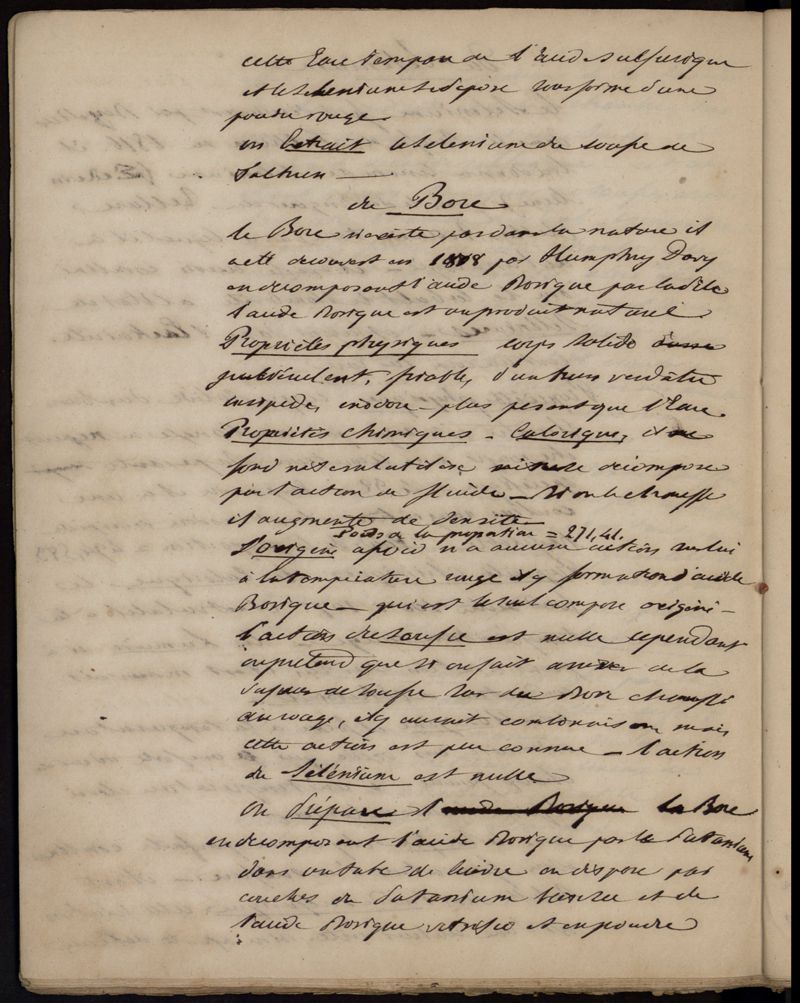 cette Eau s'empare de l'acide sulfurique
et le selenium se depose sous forme d'une
poudre rouge.
on Extrait le selenium du soufre de
Fahlun
du Bore
le Bore n'existe pas dans la nature il
a été decouvert en 1808 par Humphry Davy
en decomposant l'acide Borique par la pile
l'acide Borique est un produit naturel.
Propriétés physiques corps solide
pulvérulent, friable, d'un brun verdâtre
insipide, inodore - plus pesant que l'Eau.
Propriétés chimiques - Calorique, il ne
fond ni se volatilise ni se decompose
par l'action de fluide - Si on le chauffe
il augmente de densité
Poids de la proportion = 271,41.
L'oxigène à froid n'a aucune action sur lui
à la temperature rouge il y formation d'acide
Borique - qui est le seul composé oxigéné -
l'action du soufre est nulle cependant
on prétend que si on fait arriver de la
vapeur de soufre sur du Bore chauffé
au rouge, il y aurait combinaison mais
cette action est peu connue - l'action
du Sélénium est nulle
on prépare le Bore
en decomposant l'acide Borique par le Potassium
dans un tube de on dispose par
couches du Potassium et de
l'acide Borique vitrifié et en poudre